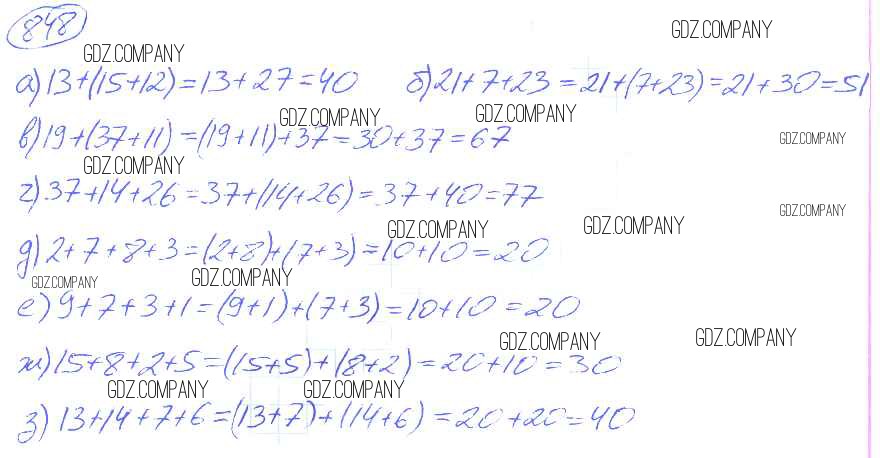 848
GDZ.COMPANY
GDZ.COMPANY
а) 13+(15+12)=13+27=40 б) 21+7+23=21+(7+23)=21+30=51
GDZ.COMPANY GDZ.COMPANY
в) 19+(37+11)=(19+11)+37=30+37=67
GDZ.COMPANY
GDZ.COMPANY
г) 37+14+26=37+(14+26)=37+40=77
GDZ.COMPANY
GDZ.COMPANY GDZ.COMPANY
д) 2+7+8+3=(2+8)+(7+3)=10+10=20
GDZ.COMPANY GDZ.COMPANY
е) 9+7+3+1=(9+1)+(7+3)=10+10=20
GDZ.COMPANY GDZ.COMPANY
ж) 15+8+2+5=(15+5)+(8+2)=20+10=30
GDZ.COMPANY GDZ.COMPANY
з) 13+14+7+6=(13+7)+(14+6)=20+20=40